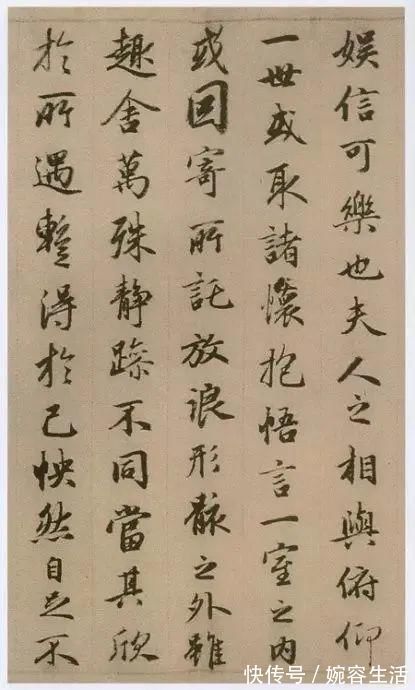 娱信可樂也夫人之相與俯仰
一世或取諸懷抱悟言一室之内
或因寄所託放浪形骸之外雖
趣舍萬殊静躁不同當其欣
於所遇蹔得於己怏然自足不
快传号／婉容生活